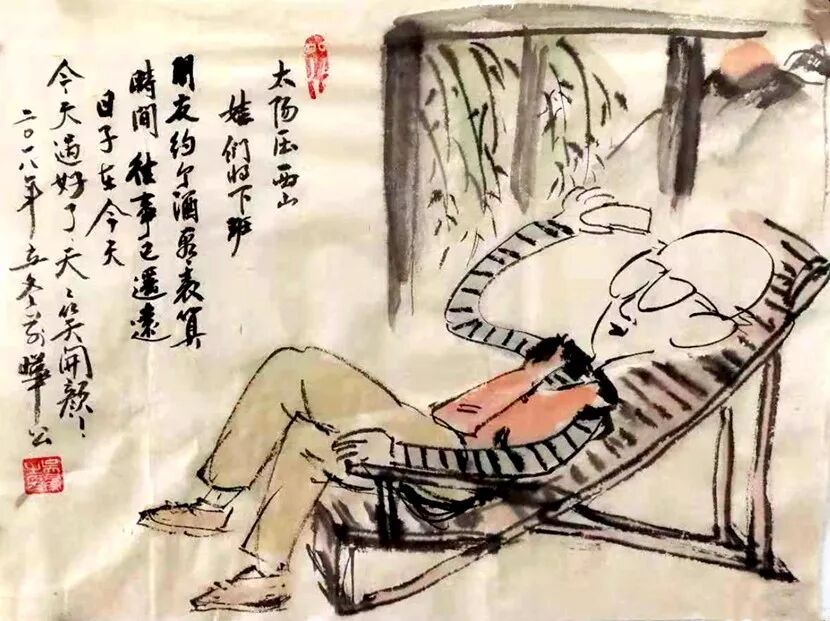 太阳压西山
娃们将下班
朋友约酒看表算
時間往事已遥遠
日子在今天
今天过好了天〻笑开颜
二〇一八年立冬前曄公